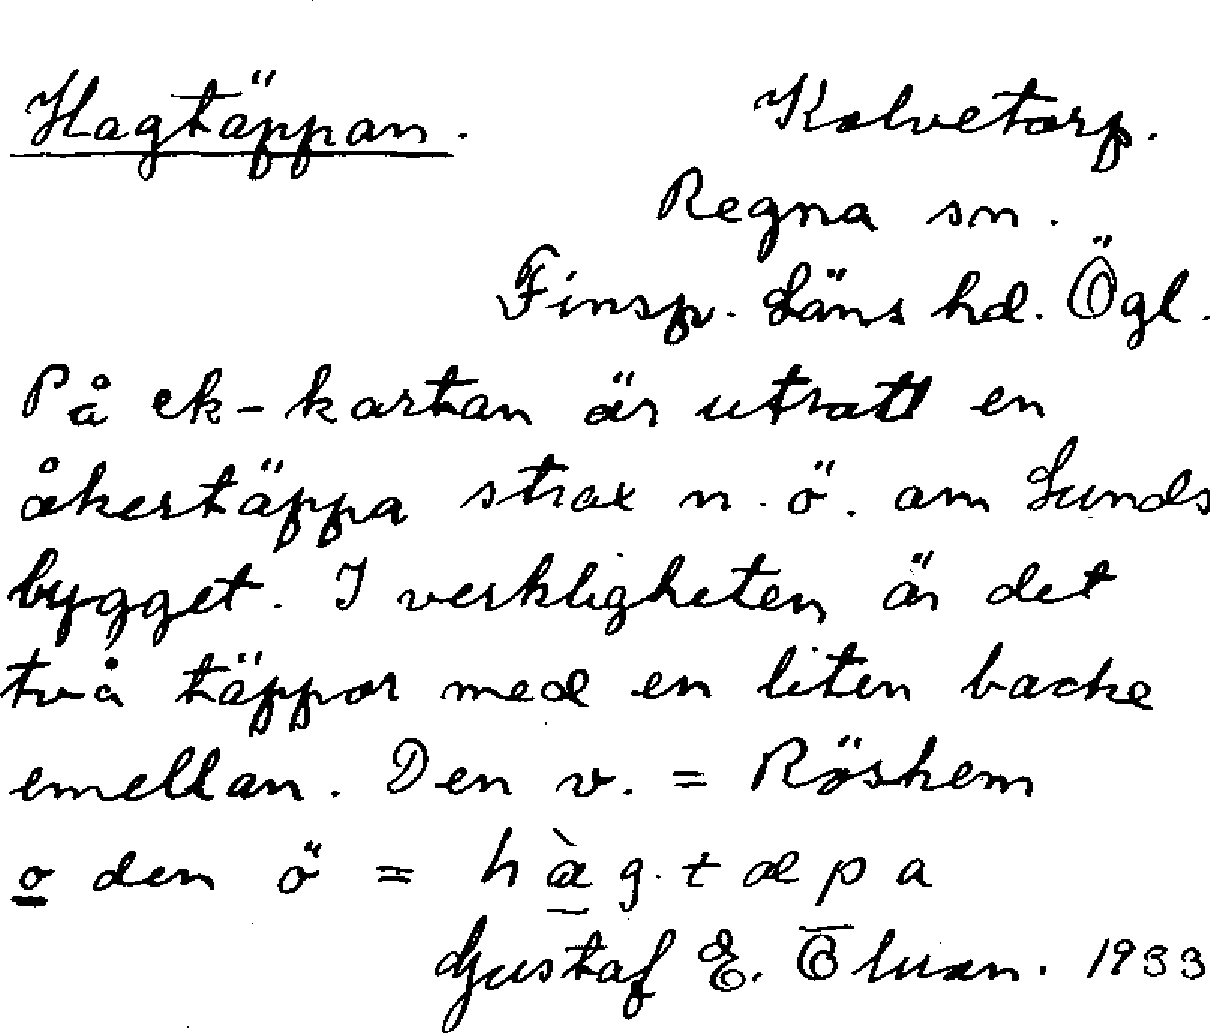 Hagtäppan. Kalvetorp.
Regna sn.
Finsp. Läns hd. Ögl.
På ek-kartan är utsatt en
åkertäppa strax n.ö. om Lunds
bygget. I verkligheten är det
två täppor med en liten backe
emellan. Den v. = Röshem
o den ö = hàg.tæpa
Gustaf E. 1933